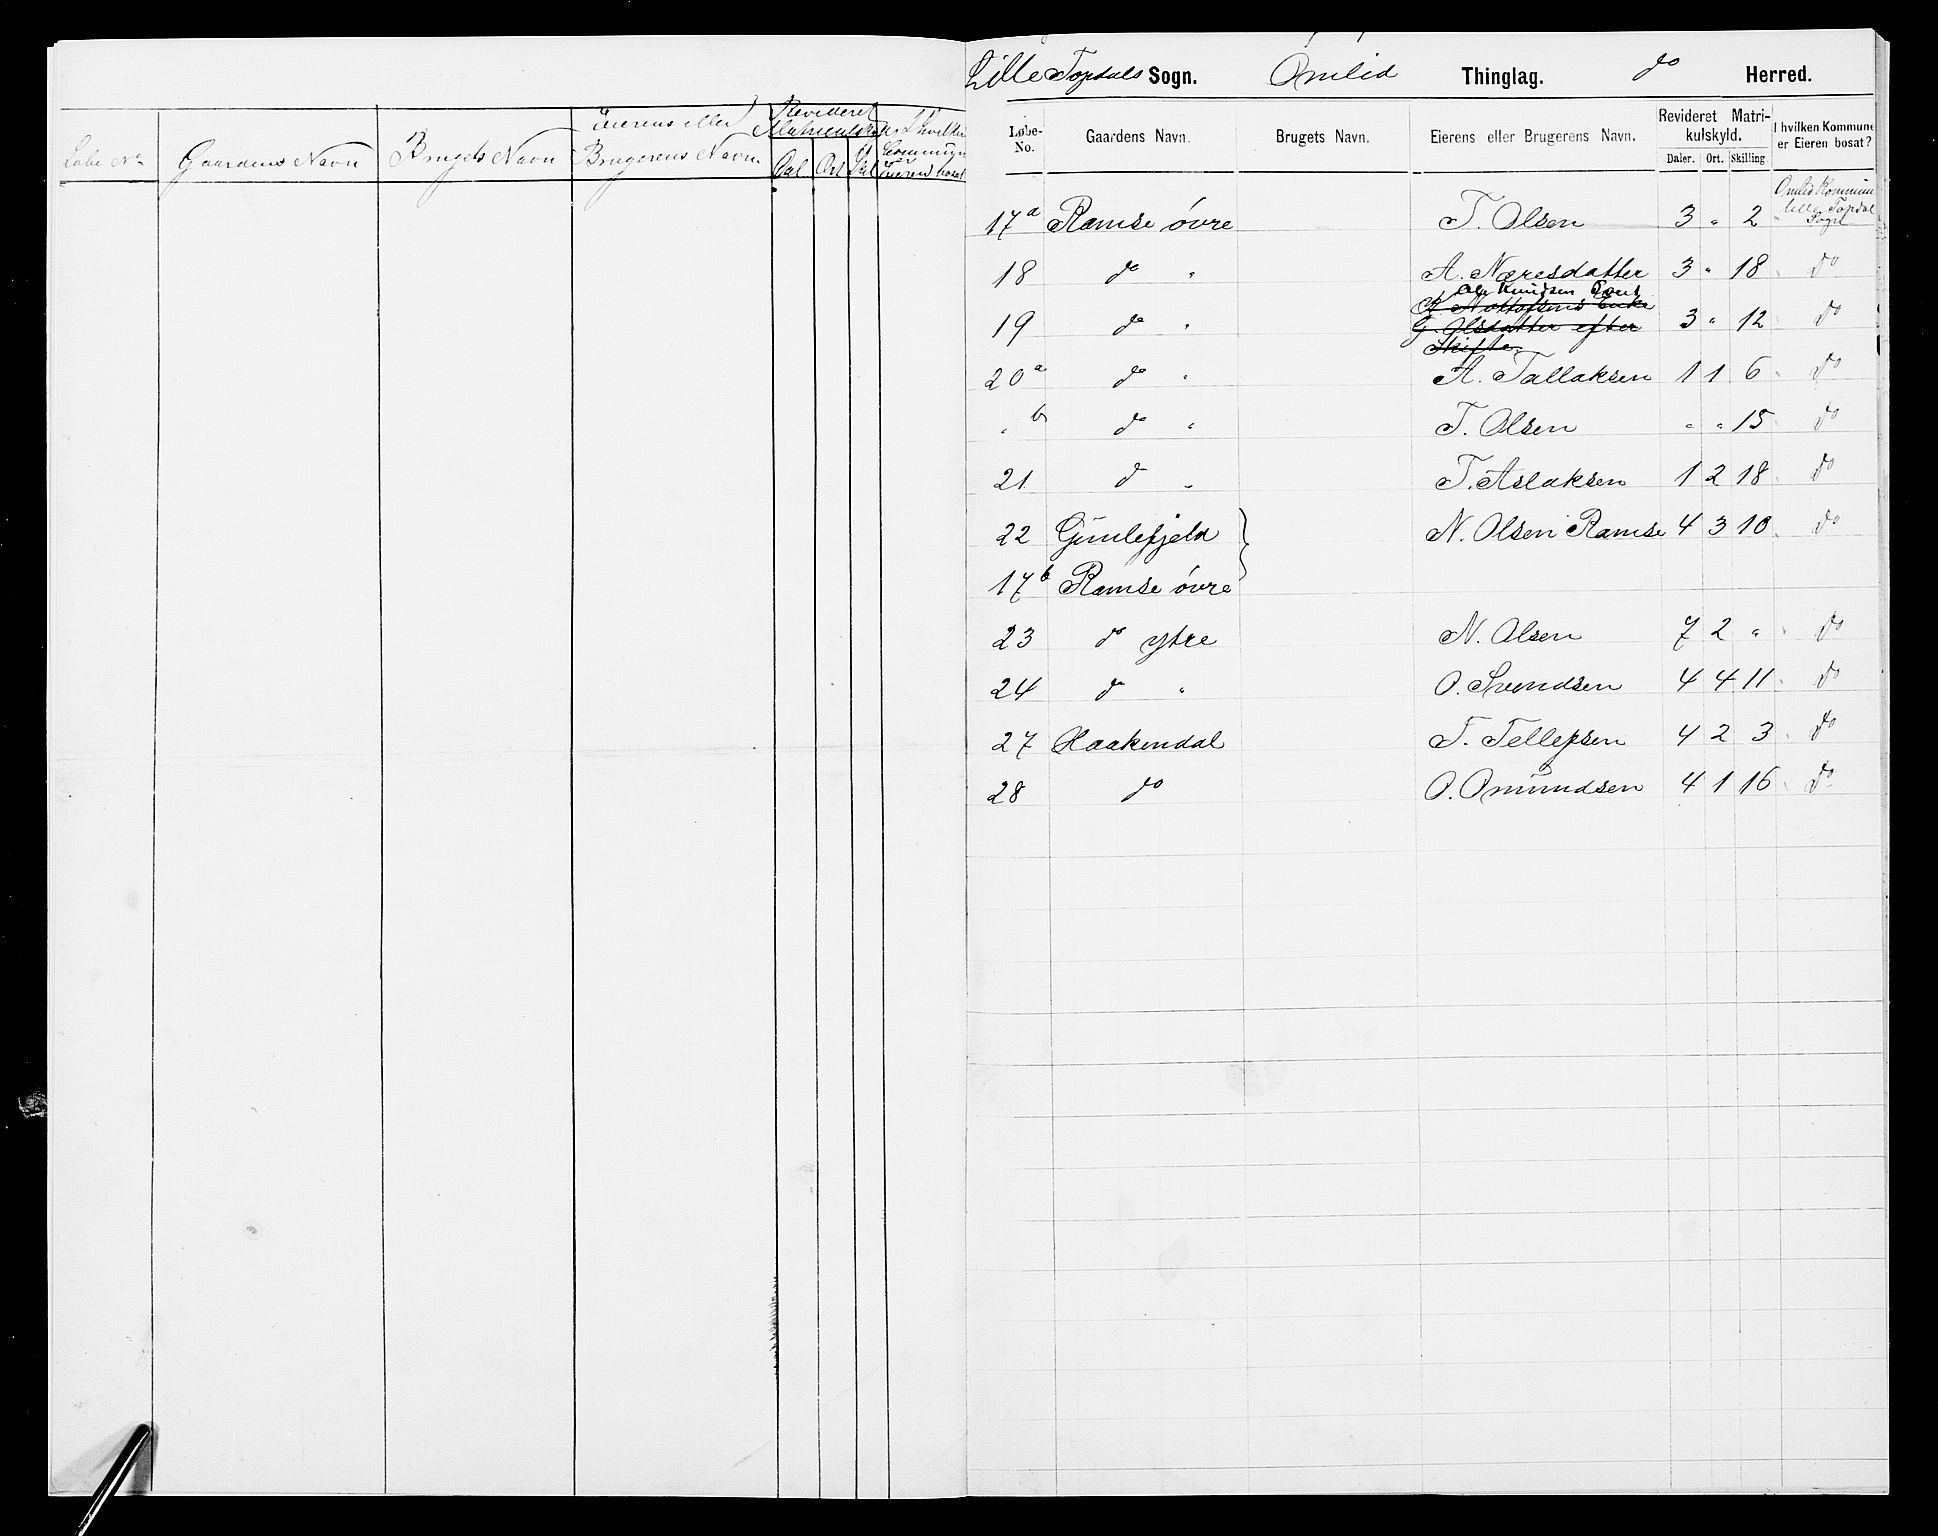 Løbe No
Gaardens Navn
Brugets Navn
Eierens eller
Brugerens Navn
Revideret
Dal Ort Skil
I hvilken
Commune
er
Eieren bosat
Lille Topdals Sogn. Omlid Thinglag. do Herred.
Løbe-
No.
Gaardens Navn.
Brugets Navn.
Eierens eller Brugerens Navn.
Revideret Matri-
kulskyld.
Daler. Ort. Skilling
I hvilken Kommune
er Eieren bosat?
17a Ramse øvre T. Olsen 3 " 2 Omlid Kommune
lille Topdal
Sogn
18 do " A. Næresdatter 3 " 18 do
Ole Knudsen
19 do " G. Olsdatter efter 3 " 12 do
Skifte.
20a do " A. Tallaksen 1 1 6 do
" b do " T. Olsen " " 15 do
21 do " T. Aslaksen 1 2 18 do
22 Gimlefjeld } N. Olsen Ramse 4 3 10 do
17b Ramse øvre
23 do ytre N. Olsen 7 2 " do
24 do " O. Svendsen 4 4 11 do
27 Haakendal T. Tellefsen 4 2 3 do
28 do O. Omundsen 4 1 16 do